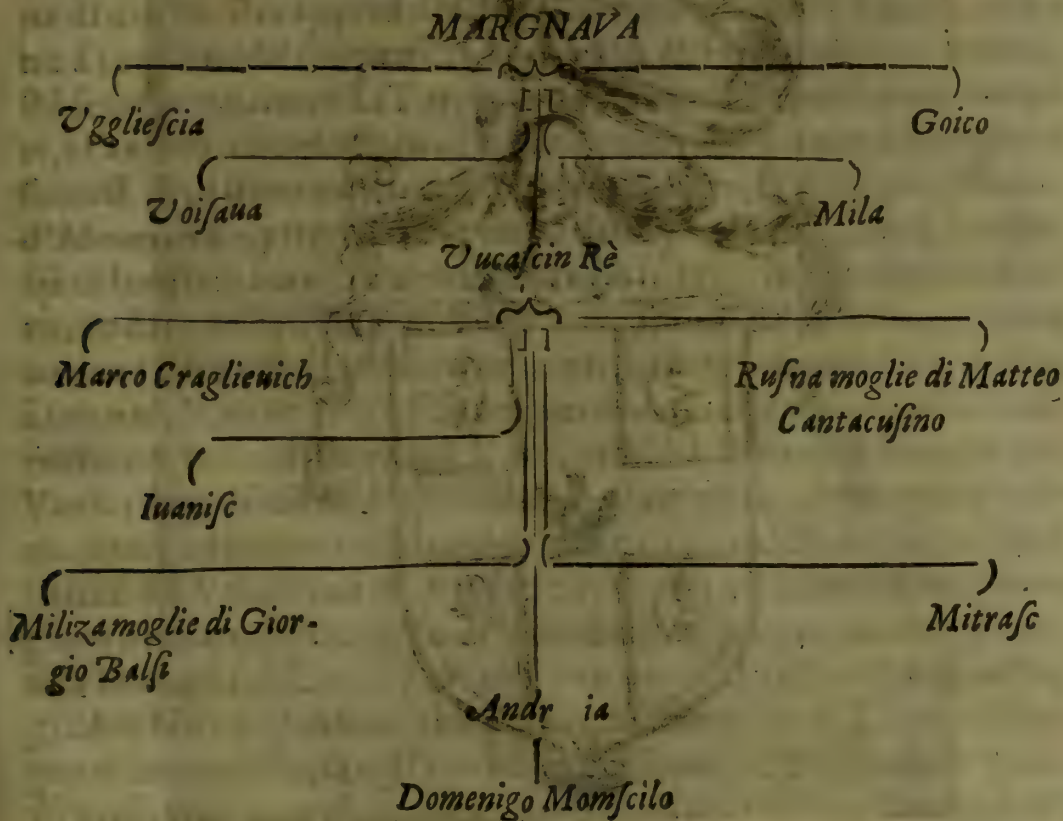 MARGNAVA
Uggliеſcia
Goico
Voiſaua
Mila
Vucaſcin Rè
Marco Craglieuich
Ruſna moglie di Matteo
Cantacuſino
Iuaniſc
Miliza moglie di Gior-
gio Balſi
Mitraſc
Andr ia
Domenigo Momſcilo